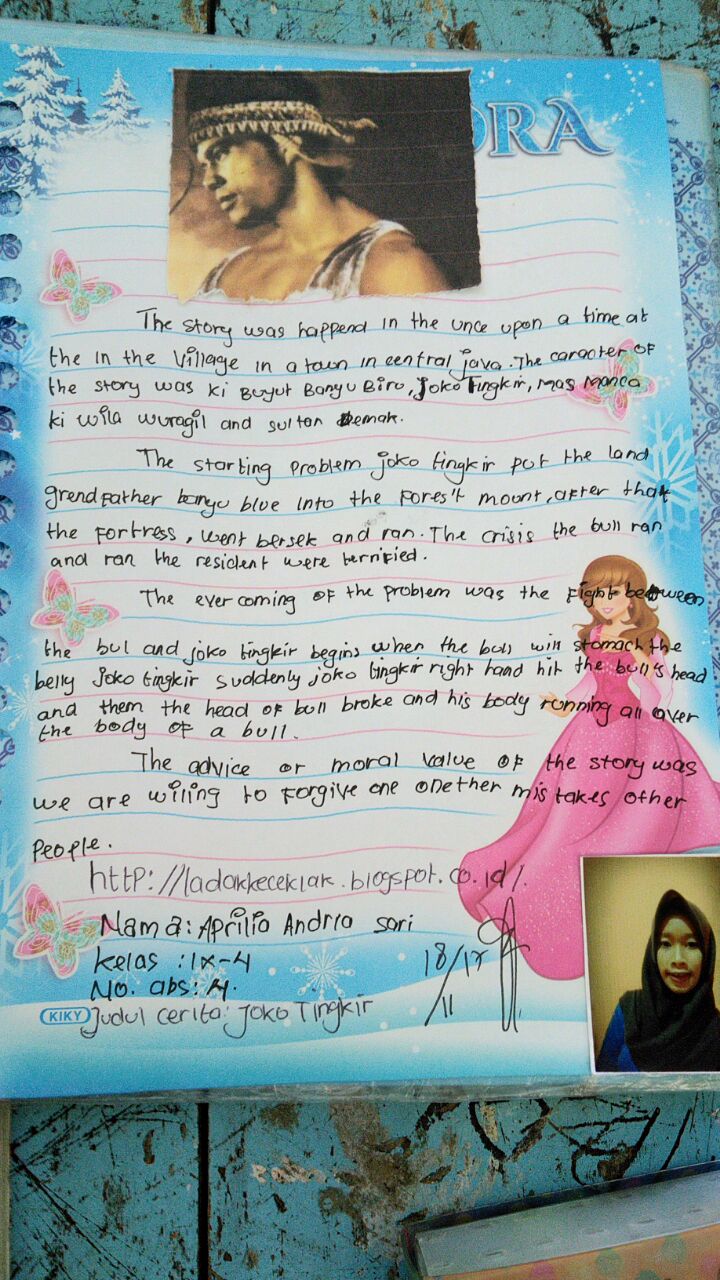 ORA
The story was happend in the unce upon a time at
the in the Village in a town in central java. The caracter OF
the story was ki Buyut Banyu Biru, Joko Tingkir, Mas Manca
ki wila wuragil and sultan Demak.
The starting problem joko tingkir put the land
grendfather banyu blue into the forest mount, after that
the fortress, went bersek and ran. The crisis the bull ran
and ran the resident were terrified.
The ever coming of the problem was the fight between
the bul and joko tingkir begins when the bull win stomach the
belly joko tingkir suddenly joko tingkir right hand hit the bull's head
and them the head of bull broke and his body running all over
the body of a bull.
The advice or moral value of the story was
we are willing to forgive one onether mistakes other
people.
http://ladakkeceklak.blogspot.co.id/.
Nama: Aprilia Andria Sari
kelas : IX-4
18/17
No. abs: 4.
/11
KIKY Judul cerita: Joko Tingkir